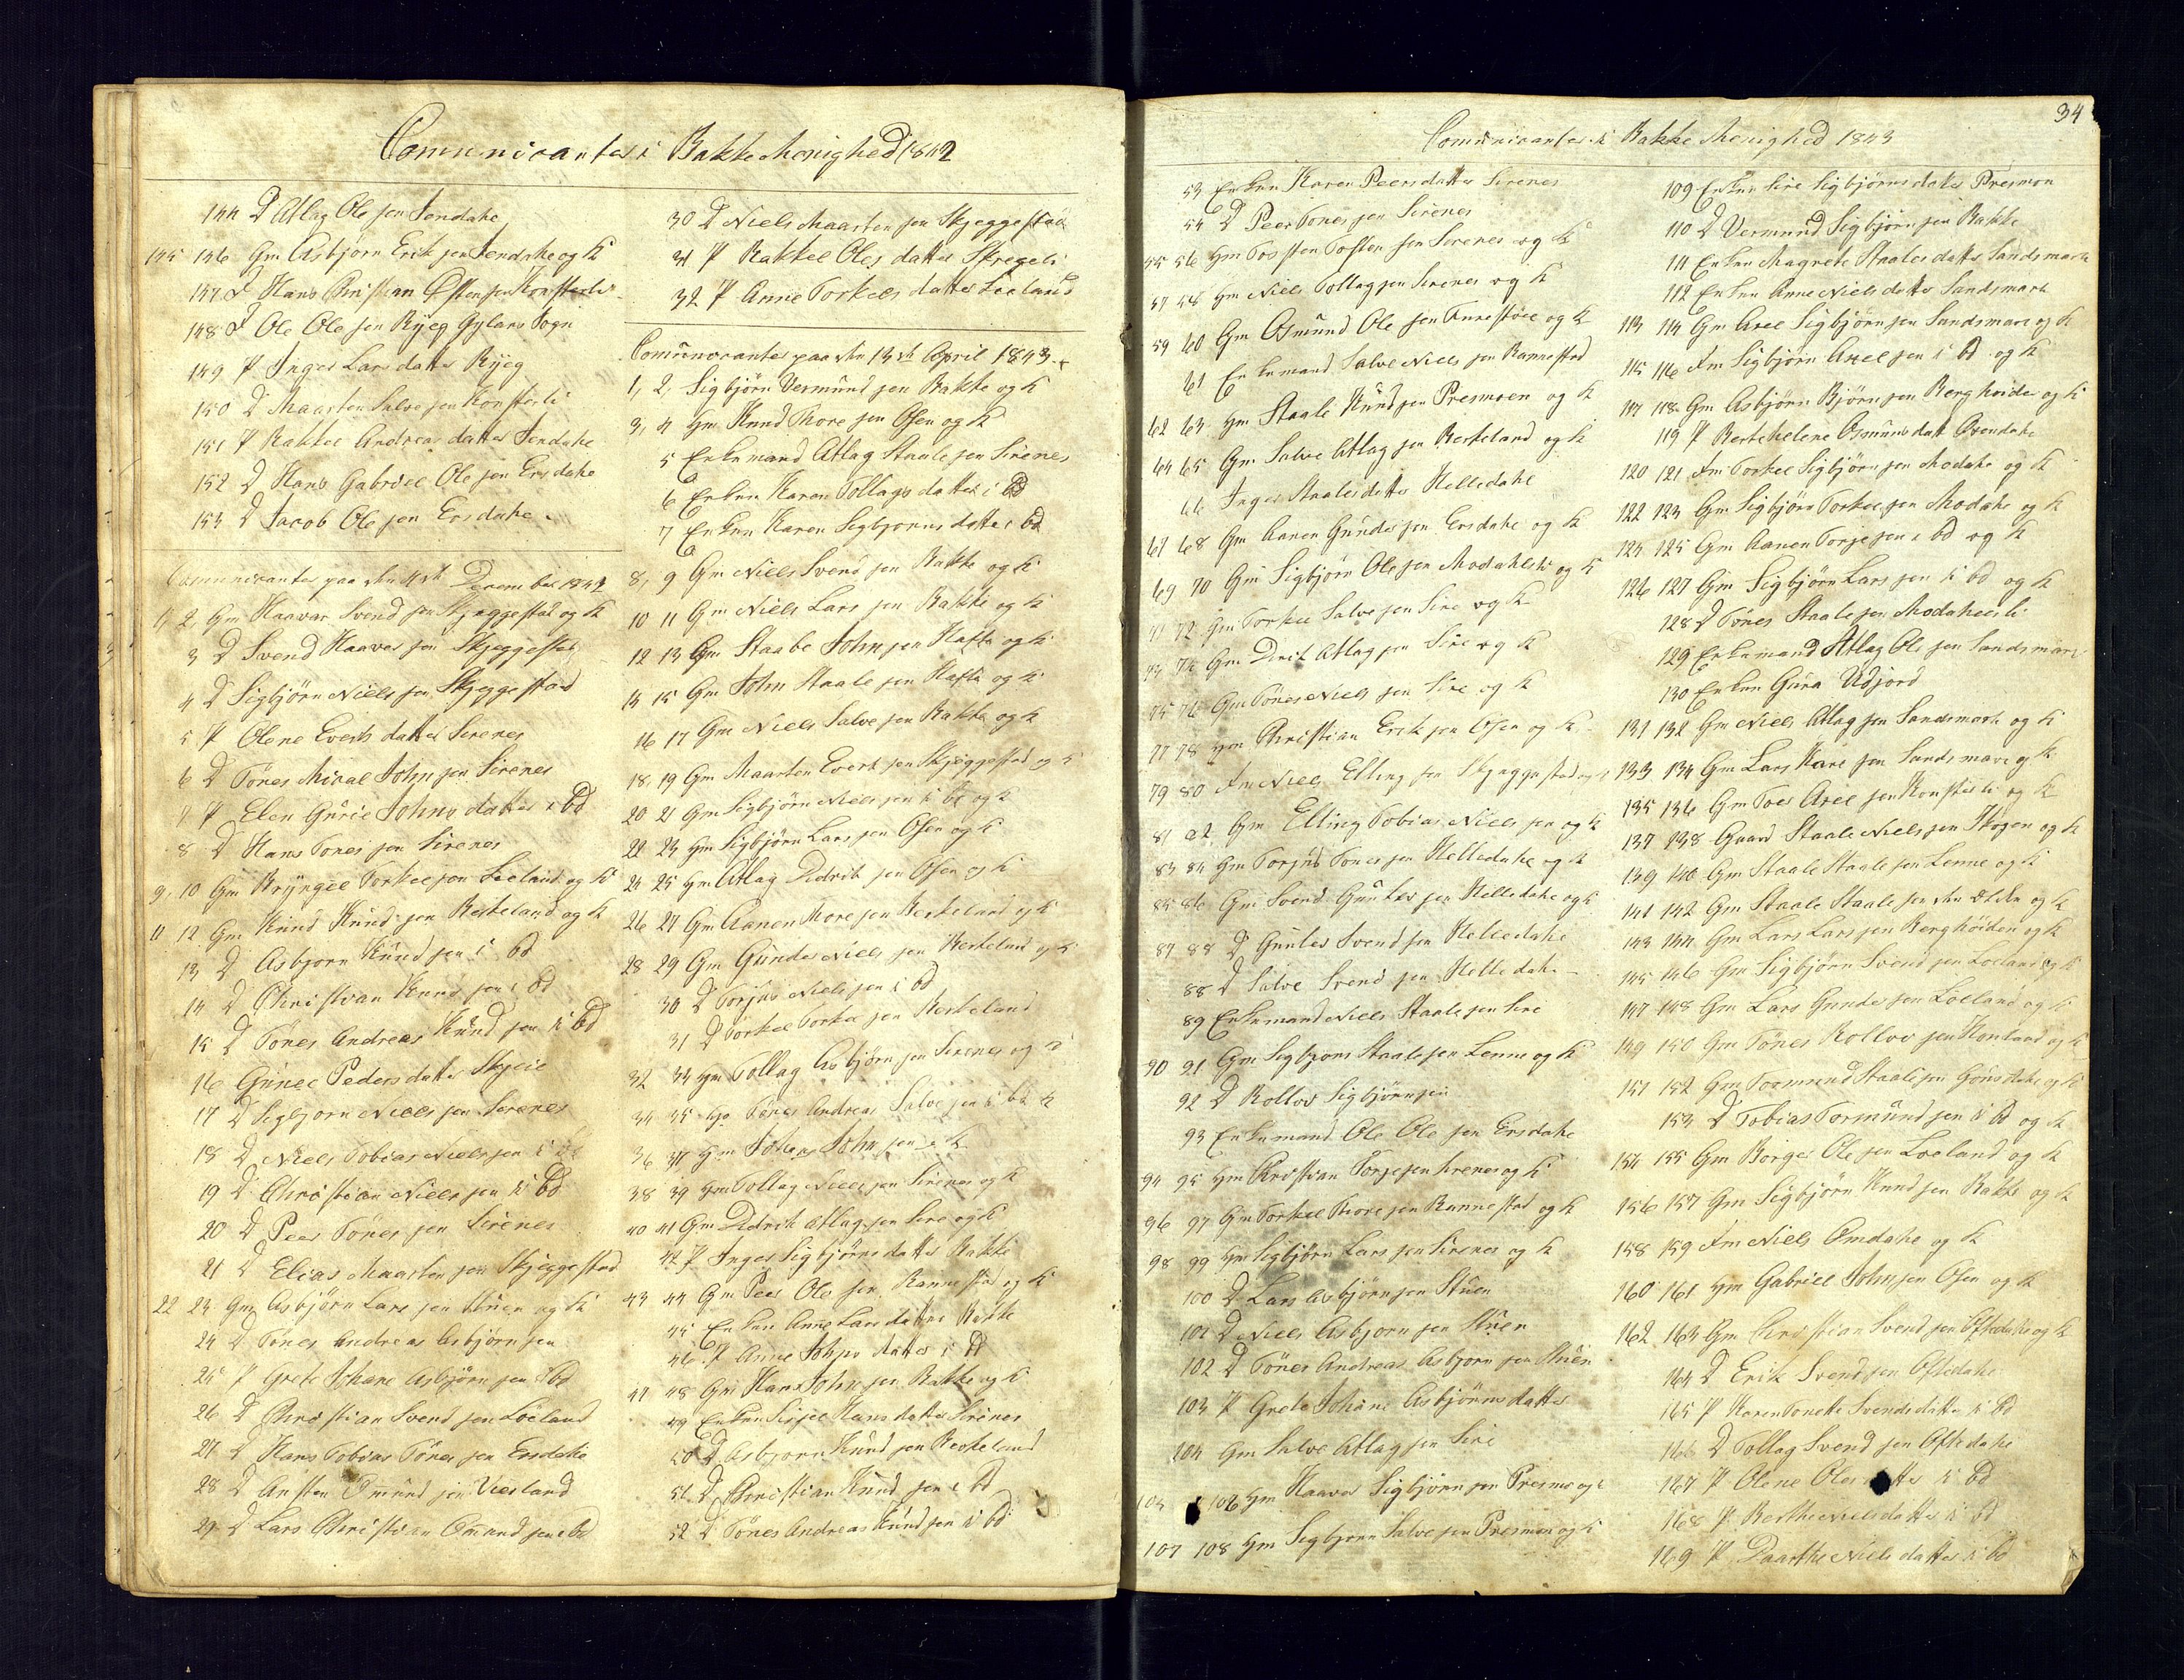 Comunicantes i Bakke Menighed 1842
144 D Atlag Ole sen Jendahe
145 146 Gm Asbjörn Erik sen Jendahe og K
147 D Hans Christian Östen sen Konsterli
148 D Ole Ole sen Ryeg Gylans Sogn
149 P Inger Lars datter Ryeg
150 D Maarten Salve sen Konsterli
151 P Rakkel Andreas datter Jendahe
152 D Hans Gabriel Ole sen Ersdahe
153 D Jacob Ole sen Ersdahe
Comunicantes paa den 4de December 1842
1, 2, Gm Haavar Svend sen Skjeggestad og K
3 D Svend Haaver sen Skjeggestad
4 D Sigbjörn Niels sen Skjeggestad
5 P Olene Everts datter Sirenes
6 D Tönes Mikal John sen Sirenes
7 P Elen Gurie Johns datter i bd
8 D Hans Tönes sen Sirenes
9, 10 Gm Bryngel Torkel sen Lieland og K
11 12 Gm Knud Knud sen Reskeland og K
13 D Asbjorn Knud sen i bd
14 D Christian Knud sen i bd
15 D Tönes Andreas Knud sen i bd
16 Gunel Peders datter Skjeie
17 D Sigbjorn Niels sen Serenes
18 D Niels Tobias Niels sen i bd
19 D Christian Niels sen i bd
20 D Peer Tönes sen Sirenes
21 D Elias Maarten sen Skjeggestad
22 23 Gm Asbjörn Lars sen Stuen og K
24 D Tönes Andreas Asbjörn sen
25 P Grete Johane Asbjörn sen i bd
26 D Christian Svend sen Loeland
27 D Hans Tobias Tönes sen Ersdahe
28 D Austen Omund sen Viesland
29 D Lars Christian Omund sen i bd
30 D Niels Maarten sen Skjeggestad
31 P Rakkel Oles datter Skregeli
32 P Anne Torkels datter Lieland
Comunicantes paa den 13de April 1843
1, 2, Sigbjörn Vermund sen Bakke og K
3, 4 Gm Knud Thore sen Osen og K
5 Enkemand Atlag Staale sen Sirenes
6 Enken Karen Tollags datter i bd
7 Enken Karen Sigbjorns datter i bd
8, 9 Gm Niels Svend sen Bakke og K
10 11 Gm Niels Lars sen Bakke og K
12 13 Gm Staale John sen Hafte og K
14 15 Gm John Staale sen Hafte og K
16 17 Gm Niels Salve sen Bakke og K
18, 19 Gm Maarten Evert sen Skjeggestad og K
20 21 Gm Sigbjörn Niels sen i bd og K
22 23 Gm Sigbjörn Lars sen Osen og K
24 25 Gm Atlag Didrik sen Osen og K
26 27 Gm Aanen Thore sen Reskeland og K
28 29 Gm Gunder Niels sen Reskeland og K
30 D Torjus Niels sen i bd
31 D Torkel Torkel sen Reskeland
32 33 Gm Tollag Asbjörn sen Sirenes og K
34 35 Gm Tönes Andreas Salve sen i bd K
36 37 Gm Johan John sen K
38 39 Gm Tollag Niels sen Sirenes og K
40 41 Gm Didrik Atlag sen Sire og K
42 P Inger Sigbjörns datter Bakke
43 44 Gm Peer Ole sen Rannestad og K
45 Enken Anne Lars datter Bakke
46 P Anne Johns datter i bd
47 48 Gm Hans John sen Bakke og K
49 Enken Sissel Hans datter Sirenes
50 D Asbjorn Knud sen Reskeland
51 D Christian Knud sen i bd
52 D Tönes Andreas Knud sen i bd
34
Comunicantes i Bakke Menighed 1843
53 Enken Karen Peers datter Sirenes
54 D Peer Tönes sen Sirenes
55 56 Gm Torsten Tosten sen Serenes og K
57 58 Gm Niels Tollag sen Sirenes og K
59 60 Gm Osmund Ole sen og K
61 Enkemand Salve Niels sen Rannestad
62 63 Gm Staale Knud sen Presmoen og K
64 65 Gm Salve Atlag sen Reskeland og K
66 Inger Staales datter Helledahe
67 68 Gm Aanen Gunder sen Ersdahe og K
69 70 Gm Sigbjörn Ole sen Modahlsli og K
71 72 Gm Torkel Salve sen Sire og K
73 74 Gm Didrik Atlag sen Sire og K
75 76 Gm Tönes Niels sen Sire og K
77 78 Gm Christian Erik sen Osen og K
79 80 Fm Niels Elling sen Skjeggestad og K
81 82 Gm Elling Tobias Niels sen og K
83 84 Gm Torjus Tönes sen Helledahe og K
85 86 Gm Svend Gunles Helledahe og K
87 88 D Gunles Svend sen Helledahe
88 D Salve Svend sen Helledahe
89 Enkemand Niels Staale sen Sire
90 91 Gm Sigbjorn Staale sen Lenne og K
92 D Rollov Sigbjörnsen
93 Enkemand Ole Ole sen Ersdahe
94 95 Gm Christian Torje sen Sirenes og K
96 97 Gm Torkel Thore sen Rannestad og K
98 99 Gm Sigbjörn Lars sen Sirenes og K
100 D Lars Asbjörn sen Stuen
101 D Niels Asbjorn sen Stuen
102 D Tönes Andreas Asbjorn sen Stuen
103 P Grete Johane Asbjörns datter
104 Gm Salve Atlag sen Sire
105 106 Gm Haaver Sigbjörn sen Presmo og K
107 108 Gm Sigbjorn Salve sen Presmoen og K
109 Enken Sire Sigbjörns datter Presmon
110 D Vermund Sigbjörn sen Bakke
111 Enken Magrete Staales datter Sandsmark
112 Enken Anne Niels datter Sandsmark
113 114 Gm Axel Sigbjörn sen Sandsmark og K
115 116 Fm Sigbjörn Axel sen i bd og K
117 118 Gm Asbjörn Björn sen Berghöiden og K
119 P Berte Helene Osmuns datt Ovendahe
120 121 Fm Torkel Sigbjörn sen Modahe og K
122 123 Gm Sigbjörn Torkel sen Modahe og K
124 125 Gm Aanen Torje sen i bd og K
126 127 Gm Sigbjörn Lars sen i bd og K
128 D Tönes Staale sen Modahlsli
129 Enkemand Atlag Ole sen Sandsmark
130 Enken Gura Udjord
131 132 Gm Niels Atlag sen Sandsmark og K
133 134 Gm Lars Kare sen Sandsmark og K
135 136 Gm Toer Axel sen Konsterli og K
137 138 Gaard Staale Niels sen Skogen og K
139 140 Gm Staale Staale sen Lenne og K
141 142 Gm Staale Staale sen den ældre og K
143 144 Gm Lars Lars sen Berghöiden og K
145 146 Gm Sigbjörn Svend sen Loeland og K
147 148 Gm Lars Gunder sen Loeland og K
149 150 Gm Tönes Rollov sen og K
151 152 Gm Tormund Staale sen og K
153 D Tobias Tormund sen i bd og K
154 155 Gm Börge Ole sen Loeland og K
156 157 Gm Sigbjörn Knud sen Bakke og K
158 159 Fm Niels Omdahe og K
160 161 Gm Gabriel John sen Osen og K
162 163 Gm Christian Svend sen Oftedahe og K
164 D Erik Svend sen Oftedahe
165 P Karen Tonette Svends datter i bd
166 D Tollag Svend sen Oftedahe
167 P Olene Oles datter i bd
168 P Berthe Niels datter i bd
169 P Daarthe Niels datter i bd